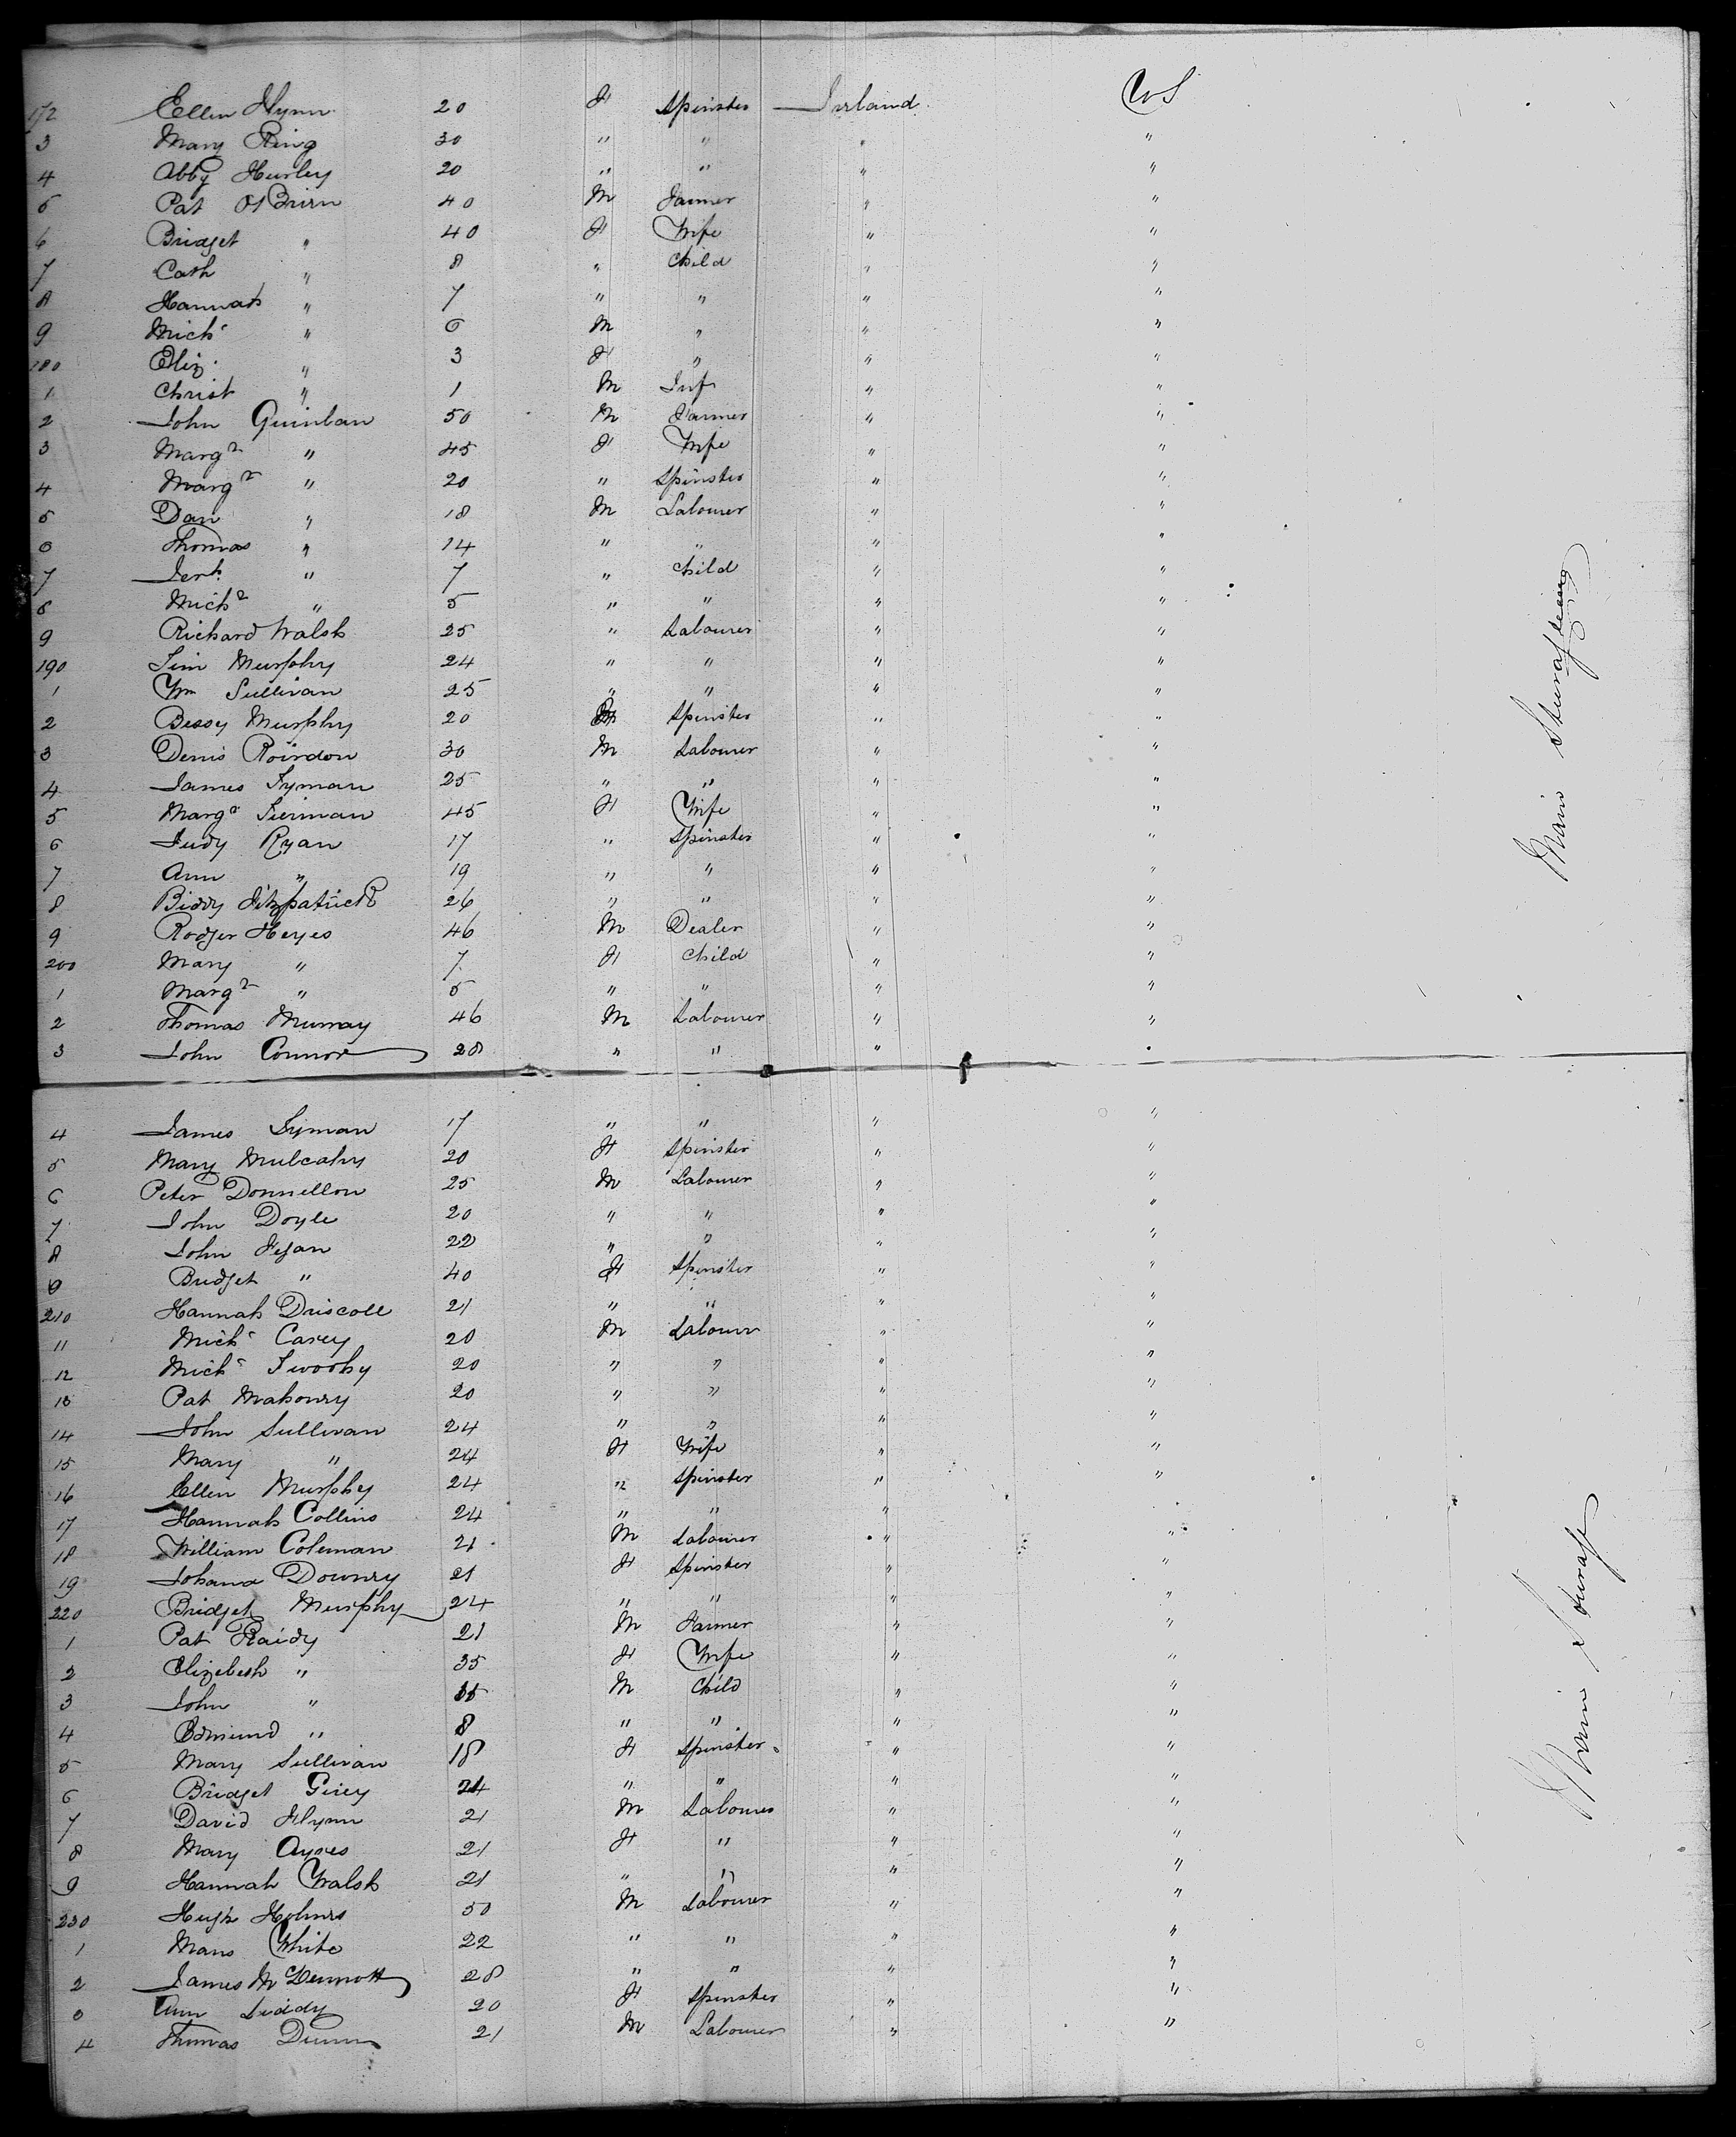 172 Ellen Flynn 20 F Spinster Irland US
3 Mary Ring 30 " " " "
4 Abby Hurley 20 " " " "
5 Pat O'Brien 40 M Farmer " "
6 Bridget " 40 F Wife " "
7 Cath " 8 " Child " "
8 Hannah " 7 " " " "
9 Mich " 6 M " " "
180 Eliz " 3 F " " "
1 Christ " 1 M Inf " "
2 John Quinlan 50 M Farmer " "
3 Margt " 45 F Wife " "
4 Margt " 20 " Spinster " "
5 Dan " 18 M Labourer " "
6 Thomas " 14 " " " "
7 Jerh " 7 " Child " "
8 Michl " 5 " " " "
9 Richard Walsh 25 " Labourer " "
190 Tim Murphy 24 " " " "
1 Wm Sullivan 25 " " " "
2 Bessy Murphy 20 F Spinster " "
3 Denis Roirdon 30 M Labourer " "
4 James Tyman 25 " " " "
5 Margt Tierman 45 F Wife " "
6 Judy Ryan 17 " Spinster " "
7 Ann " 19 " " " "
8 Biddy Fitzpatrick 26 " " " "
9 Rodger Heyes 46 M Dealer " "
200 Mary " 7 F Child " "
1 Margt " 5 " " " "
2 Thomas Murray 46 M Labourer " "
3 John Connor 28 " " " "
Main
4 James Tyman 17 " " " "
5 Mary Mulcahy 20 F Spinster " "
6 Peter Donnellon 25 M Labourer " "
7 John Doyle 20 " " " "
8 John Fegan 22 " " " "
9 Bridget " 40 F Spinster " "
210 Hannah Driscoll 21 " " " "
11 Mich Carey 20 M Labourer " "
12 Mich Twoohy 20 " " " "
13 Pat Mahoney 20 " " " "
14 John Sullivan 24 " " " "
15 Mary " 24 F Wife " "
16 Ellen Murphy 24 " Spinster " "
17 Hannah Collins 24 " " " "
18 William Coleman 21 M Labourer " "
19 Johana Downey 21 F Spinster " "
220 Bridget Murphy 24 " " " "
1 Pat Raidy 21 M Farmer " "
2 Elizebeth " 35 F Wife " "
3 John " M Child " "
4 Edmund " 8 " " " "
5 Mary Sullivan 18 F Spinster " "
6 Bridget 24 " " " "
7 David Flynn 21 M Labourer " "
8 Mary Ayres 21 F " " "
9 Hannah Walsh 21 " " " "
230 Hugh Holmes 50 M Labourer " "
1 White 22 " " " "
2 James McDermott 28 " " " "
3 Ann Liddy 20 F Spinster " "
4 Thomas Dunn 21 M Labourer " "
Main Steerage